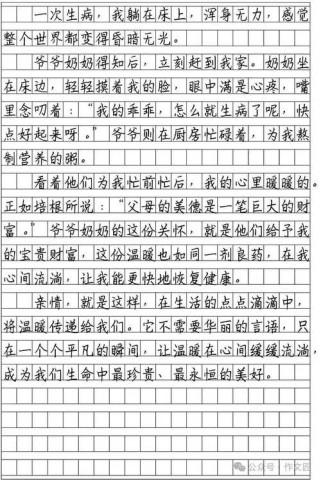 一次生病，我躺在床上，浑身无力，感觉
整个世界都变得昏暗无光。
爷爷奶奶得知后，立刻赶到我家。奶奶坐
在床边，轻轻摸着我的脸，眼中满是心疼，嘴
里念叨着：“我的乖乖，怎么就生病了呢，快
点好起来呀。”爷爷则在厨房忙碌着，为我熬
制营养的粥。
看着他们为我忙前忙后，我的心里暖暖的。
正如培根所说：“父母的美德是一笔巨大的财
富。”爷爷奶奶的这份关怀，就是他们给予我
的宝贵财富，这份温暖也如同一剂良药，在我
心间流淌，让我能更快地恢复健康。
亲情，就是这样，在生活的点点滴滴中，
将温暖传递给我们。它不需要华丽的言语，只
在一个个平凡的瞬间，让温暖在心间缓缓流淌，
成为我们生命中最珍贵、最永恒的美好。
公众号·作文匠